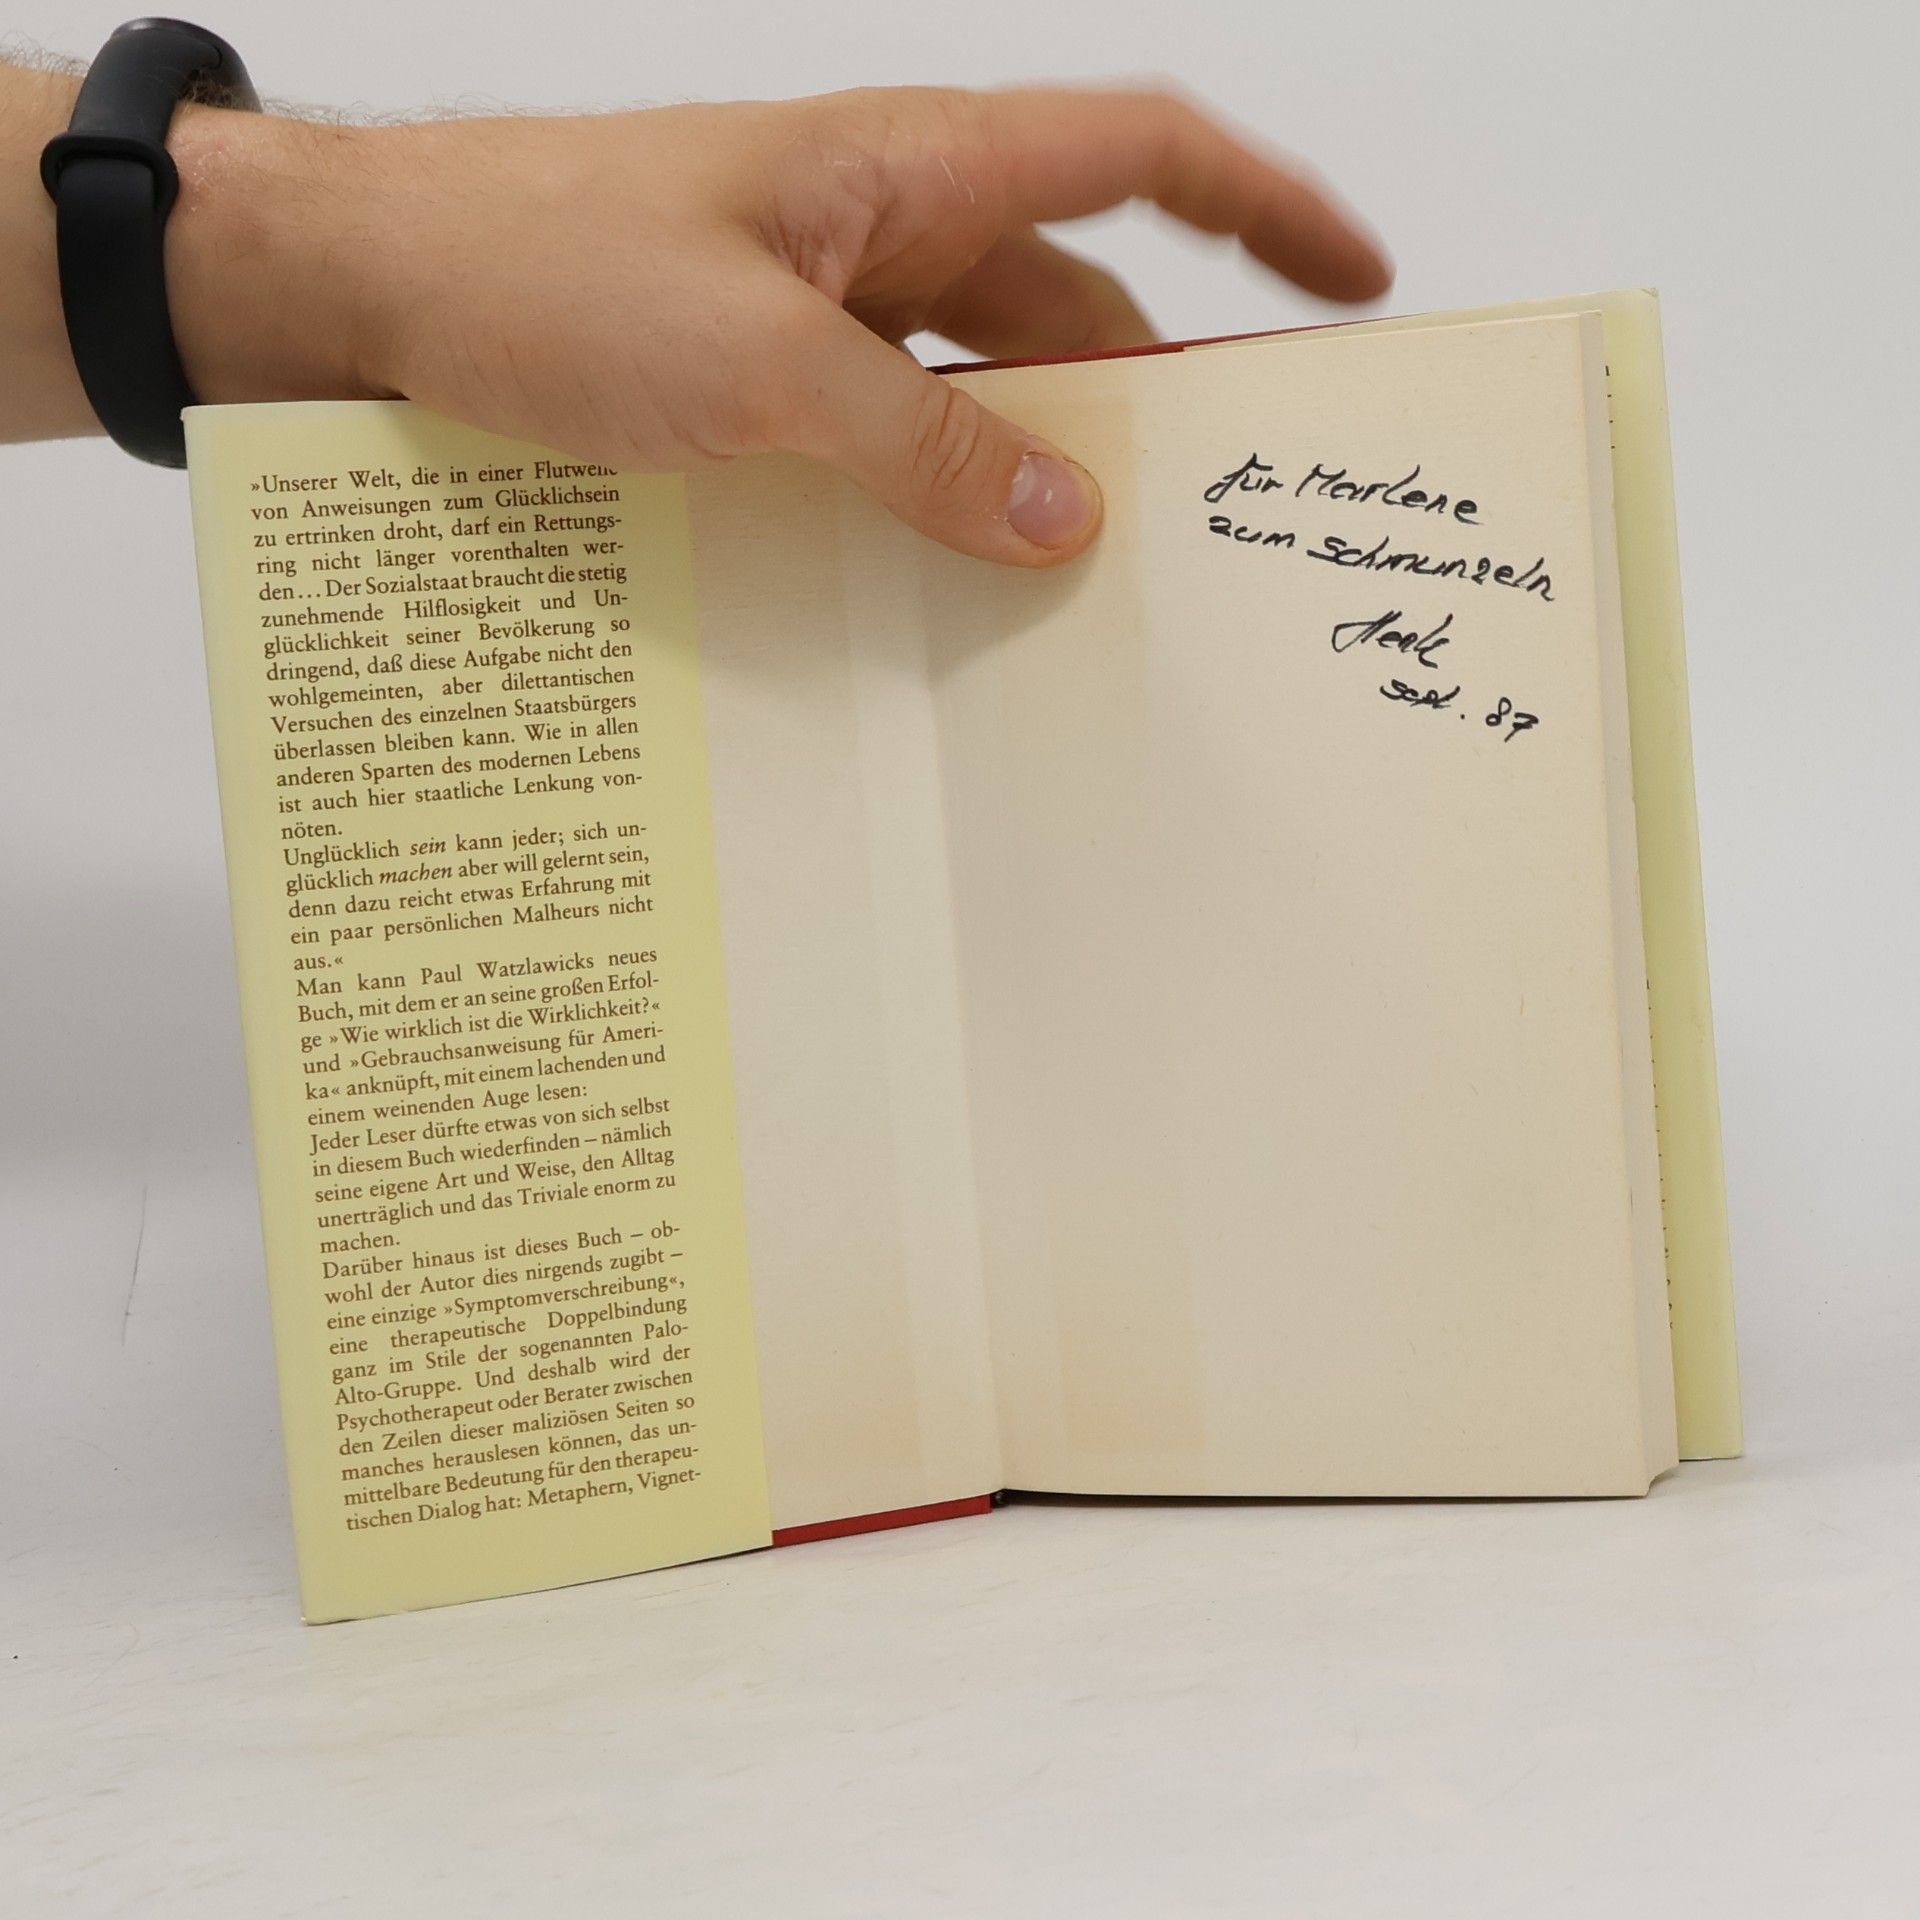 »Unserer Welt, die in einer Flutwelle
von Anweisungen zum Glücklichsein
zu ertrinken droht, darf ein Rettungs-
ring nicht länger vorenthalten wer-
den... Der Sozialstaat braucht die stetig
zunehmende Hilflosigkeit und Un-
glücklichkeit seiner Bevölkerung so
dringend, daß diese Aufgabe nicht den
wohlgemeinten, aber dilettantischen
Versuchen des einzelnen Staatsbürgers
überlassen bleiben kann. Wie in allen
anderen Sparten des modernen Lebens
ist auch hier staatliche Lenkung von-
nöten.
Unglücklich sein kann jeder; sich un-
glücklich machen aber will gelernt sein,
denn dazu reicht etwas Erfahrung mit
ein paar persönlichen Malheurs nicht
aus.«
Man kann Paul Watzlawicks neues
Buch, mit dem er an seine großen Erfol-
ge »Wie wirklich ist die Wirklichkeit?«
und »Gebrauchsanweisung für Ameri-
ka« anknüpft, mit einem lachenden und
einem weinenden Auge lesen:
Jeder Leser dürfte etwas von sich selbst
in diesem Buch wiederfinden – nämlich
seine eigene Art und Weise, den Alltag
unerträglich und das Triviale enorm zu
machen.
Darüber hinaus ist dieses Buch – ob-
wohl der Autor dies nirgends zugibt –
eine einzige »Symptomverschreibung«,
eine therapeutische Doppelbindung
ganz im Stile der sogenannten Palo-
Alto-Gruppe. Und deshalb wird der
Psychotherapeut oder Berater zwischen
den Zeilen dieser maliziösen Seiten so
manches herauslesen können, das un-
mittelbare Bedeutung für den therapeu-
tischen Dialog hat: Metaphern, Vignet-
für Marlene
zum schmunzeln
Henk
sept. 87